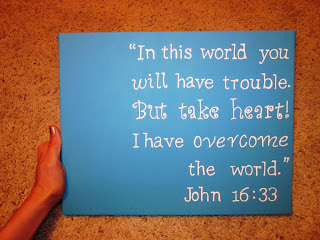 “In this world you
will have trouble.
But take heart!
I have overcome
the world.”
John 16:33